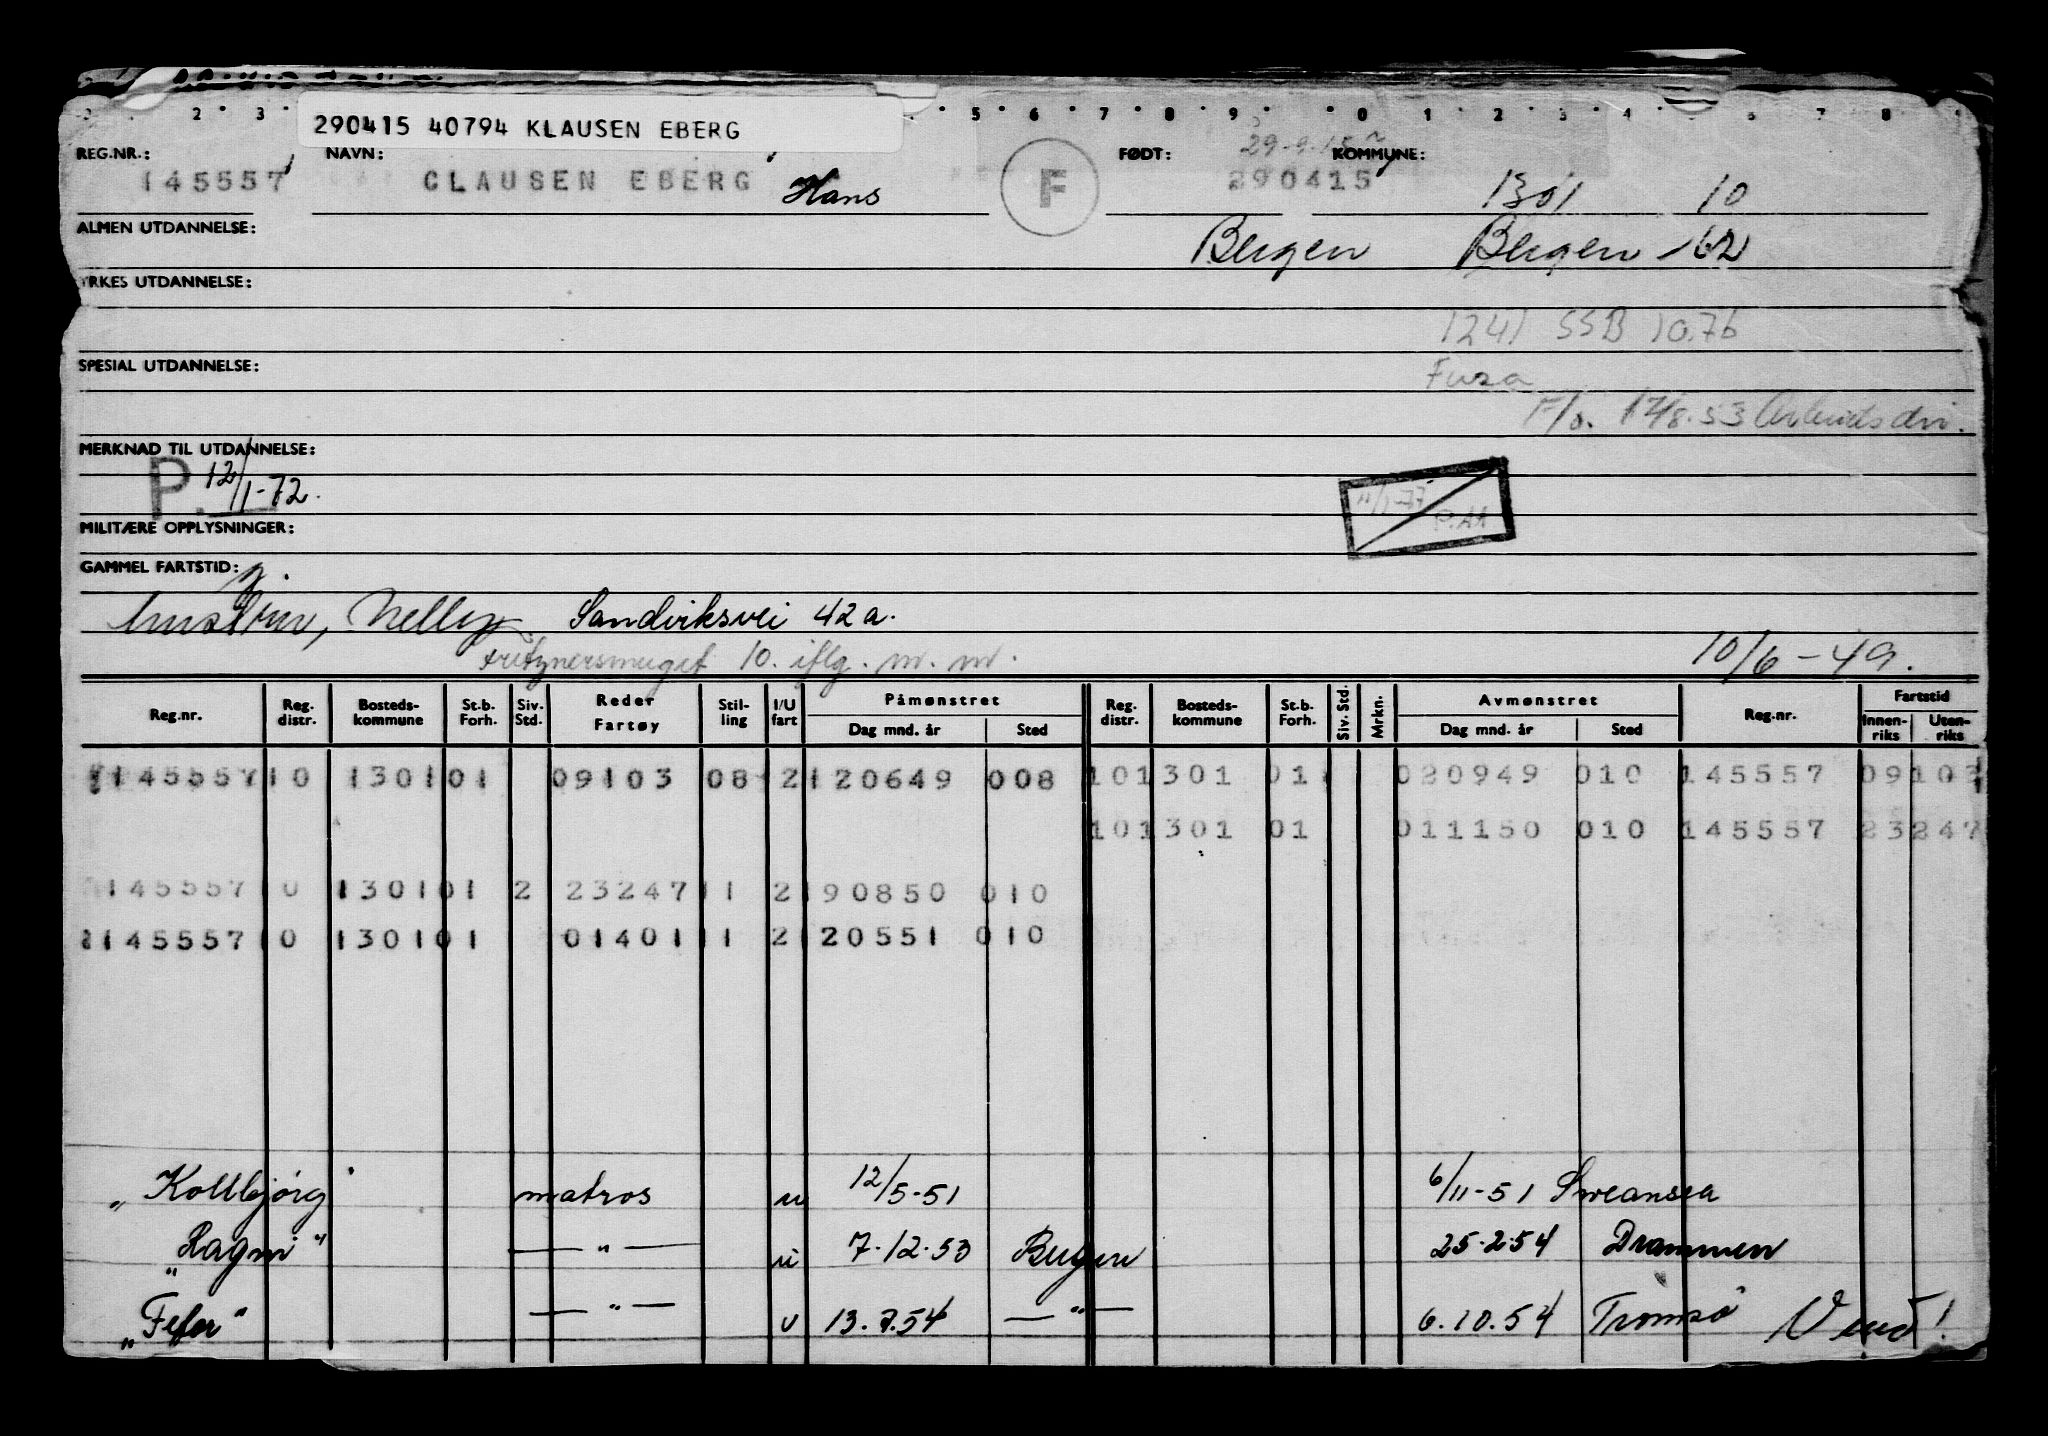 2 3 5 6 7 8 9 0 1 2 3 4 5 6 7 8
290415 40794 KLAUSEN EBERG
REG.NR.: NAVN: FØDT: 29-9-15 KOMMUNE:
145557 CLAUSEN EBERG Hans F 290415 1301 10
ALMEN UTDANNELSE: Bergen Bergen 162
YRKES UTDANNELSE:
1241 SSB 10.76
SPESIAL UTDANNELSE: Fusa
F/o. 17/8.53
MERKNAD TIL UTDANNELSE:
P. 12/1-72. 11/1-77 P.AA
MILITÆRE OPPLYSNINGER:
GAMMEL FARTSTID: g.
hustru, Nelly Sandviksvei 42a.
Fritznersmuget 10. iflg. m. m. 10/6-49.
Reg.nr. Reg. distr. Bosteds-kommune St.b. Forh. Siv. Std. Reder Fartøy Stil-ling I/U fart Påmønstret Dag mnd. år Sted Reg. distr. Bosteds-kommune St.b. Forh. Siv. Std. Mrkn. Avmønstret Dag mnd. år Sted Reg.nr. Fartstid Innen-riks Uten-riks
145557 10 1301 01 09103 08 2 120649 008 10 1301 01 020949 010 145557 09103
10 1301 01 011150 010 145557 23247
145557 10 1301 01 2 23247 11 2 190850 010
145557 10 1301 01 01401 11 2 120551 010
"Kollbjørg" matros u 12/5-51 6/11-51 Sweansea
"Ragni" — " — u 7.12.53 Bergen 25.2.54 Drammen
"Fefor" — " — u 13.7.54 — " — 6.10.54 Tromsø Vend!